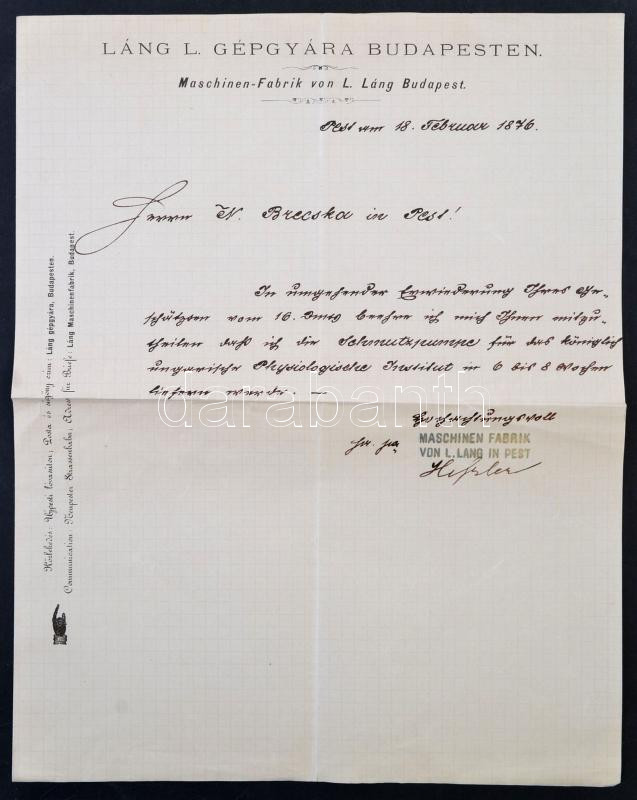 LÁNG L. GÉPGYÁRA BUDAPESTEN.
Maschinen-Fabrik von L. Láng Budapest.
Pest am 18. Februar 1876.
Herrn W. Brecska in Pest!
In umgehender Erwiederung Ihres Ge-
schätzten vom 16. beehre ich mich Ihnen mitzu-
theilen daß ich die Schmutzpumpe für das königlich
ungarische Physiologische Institut in 6 bis 8 Wochen
liefern werde. —
Hochachtungsvoll
MASCHINEN FABRIK
VON L. LANG IN PEST
Közlekedés: Ujpesti lóvasuton; Posta és sürgöny czim: Láng gépgyára, Budapesten.
Communication: Neupester Strassenbahn; Adres für Briefe: Láng Maschinenfabrik, Budapest.
darabanth